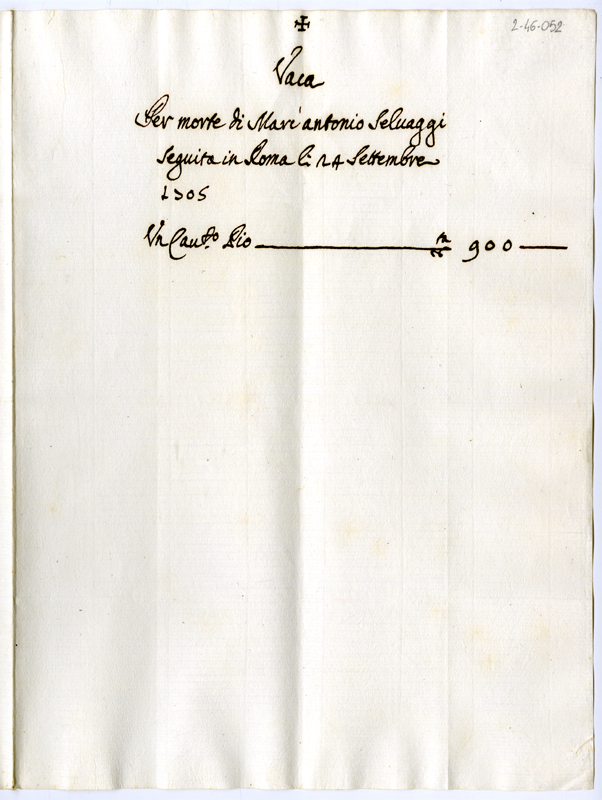 2-46-052
✠
Vaca
Per morte di Mari'antonio Seluaggi
seguita in Roma li 24 Settembre
1705
Un Cau.to Pio 900